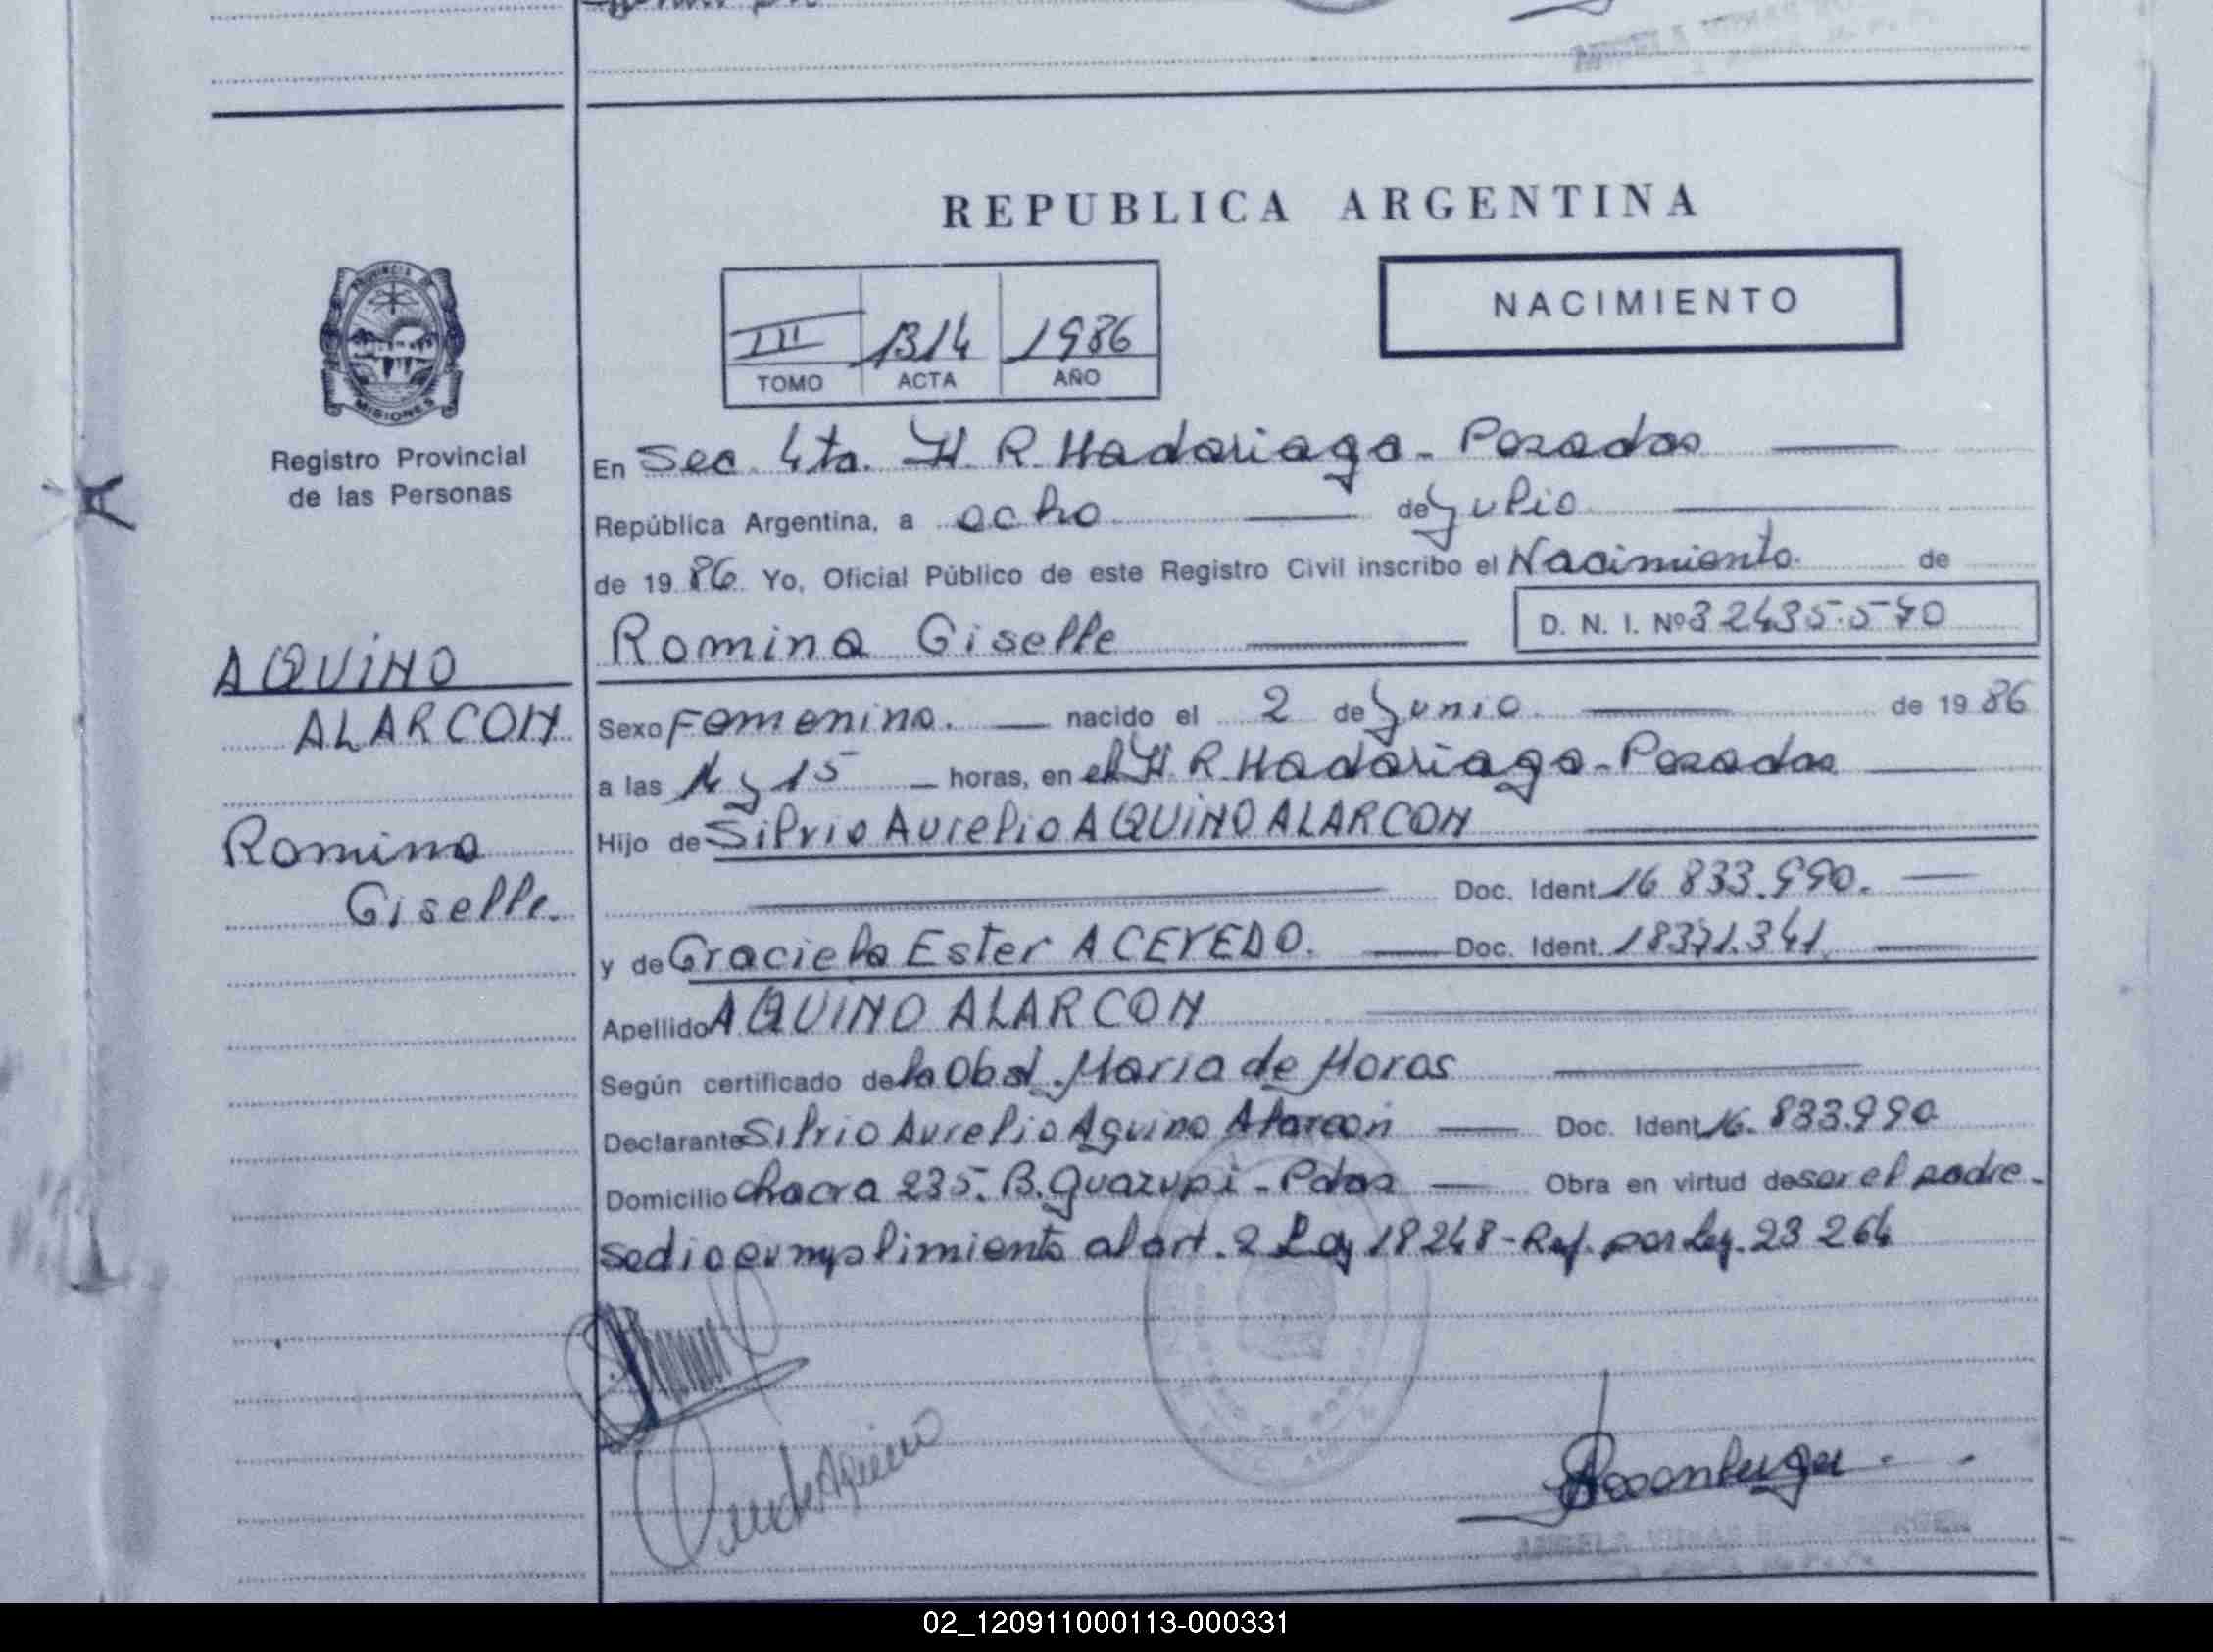 REPUBLICA ARGENTINA
NACIMIENTO
III 1314 1986
TOMO ACTA AÑO
PROVINCIA DE
MISIONES
Registro Provincial
de las Personas
AQUINO
ALARCON
Romina
Giselle.
En Sec. 4ta. H. R. Madariaga - Posadas
República Argentina, a ocho de Julio
de 1986. Yo, Oficial Público de este Registro Civil inscribo el Nacimiento. de
Romina Giselle D. N. I. Nº 32435.570
Sexo Femenino. nacido el 2 de Junio de 1986
a las y 15 horas, en el H. R. Madariaga - Posadas
Hijo de Silvio Aurelio AQUINO ALARCON
Doc. Ident. 16 833.990.
y de Graciela Ester ACEVEDO. Doc. Ident. 18371.341
Apellido AQUINO ALARCON
Según certificado de la Obst. Maria de Moras
Declarante Silvio Aurelio Aquino Alarcon Doc. Ident. 16. 833.990
Domicilio chacra 235. B. Guazupi - Pdas Obra en virtud de ser el padre -
se dio cumplimiento al art. 2 Ley 18248 - Ref. por Ley. 23 264
Aquino
Rosenberger
02_120911000113-000331